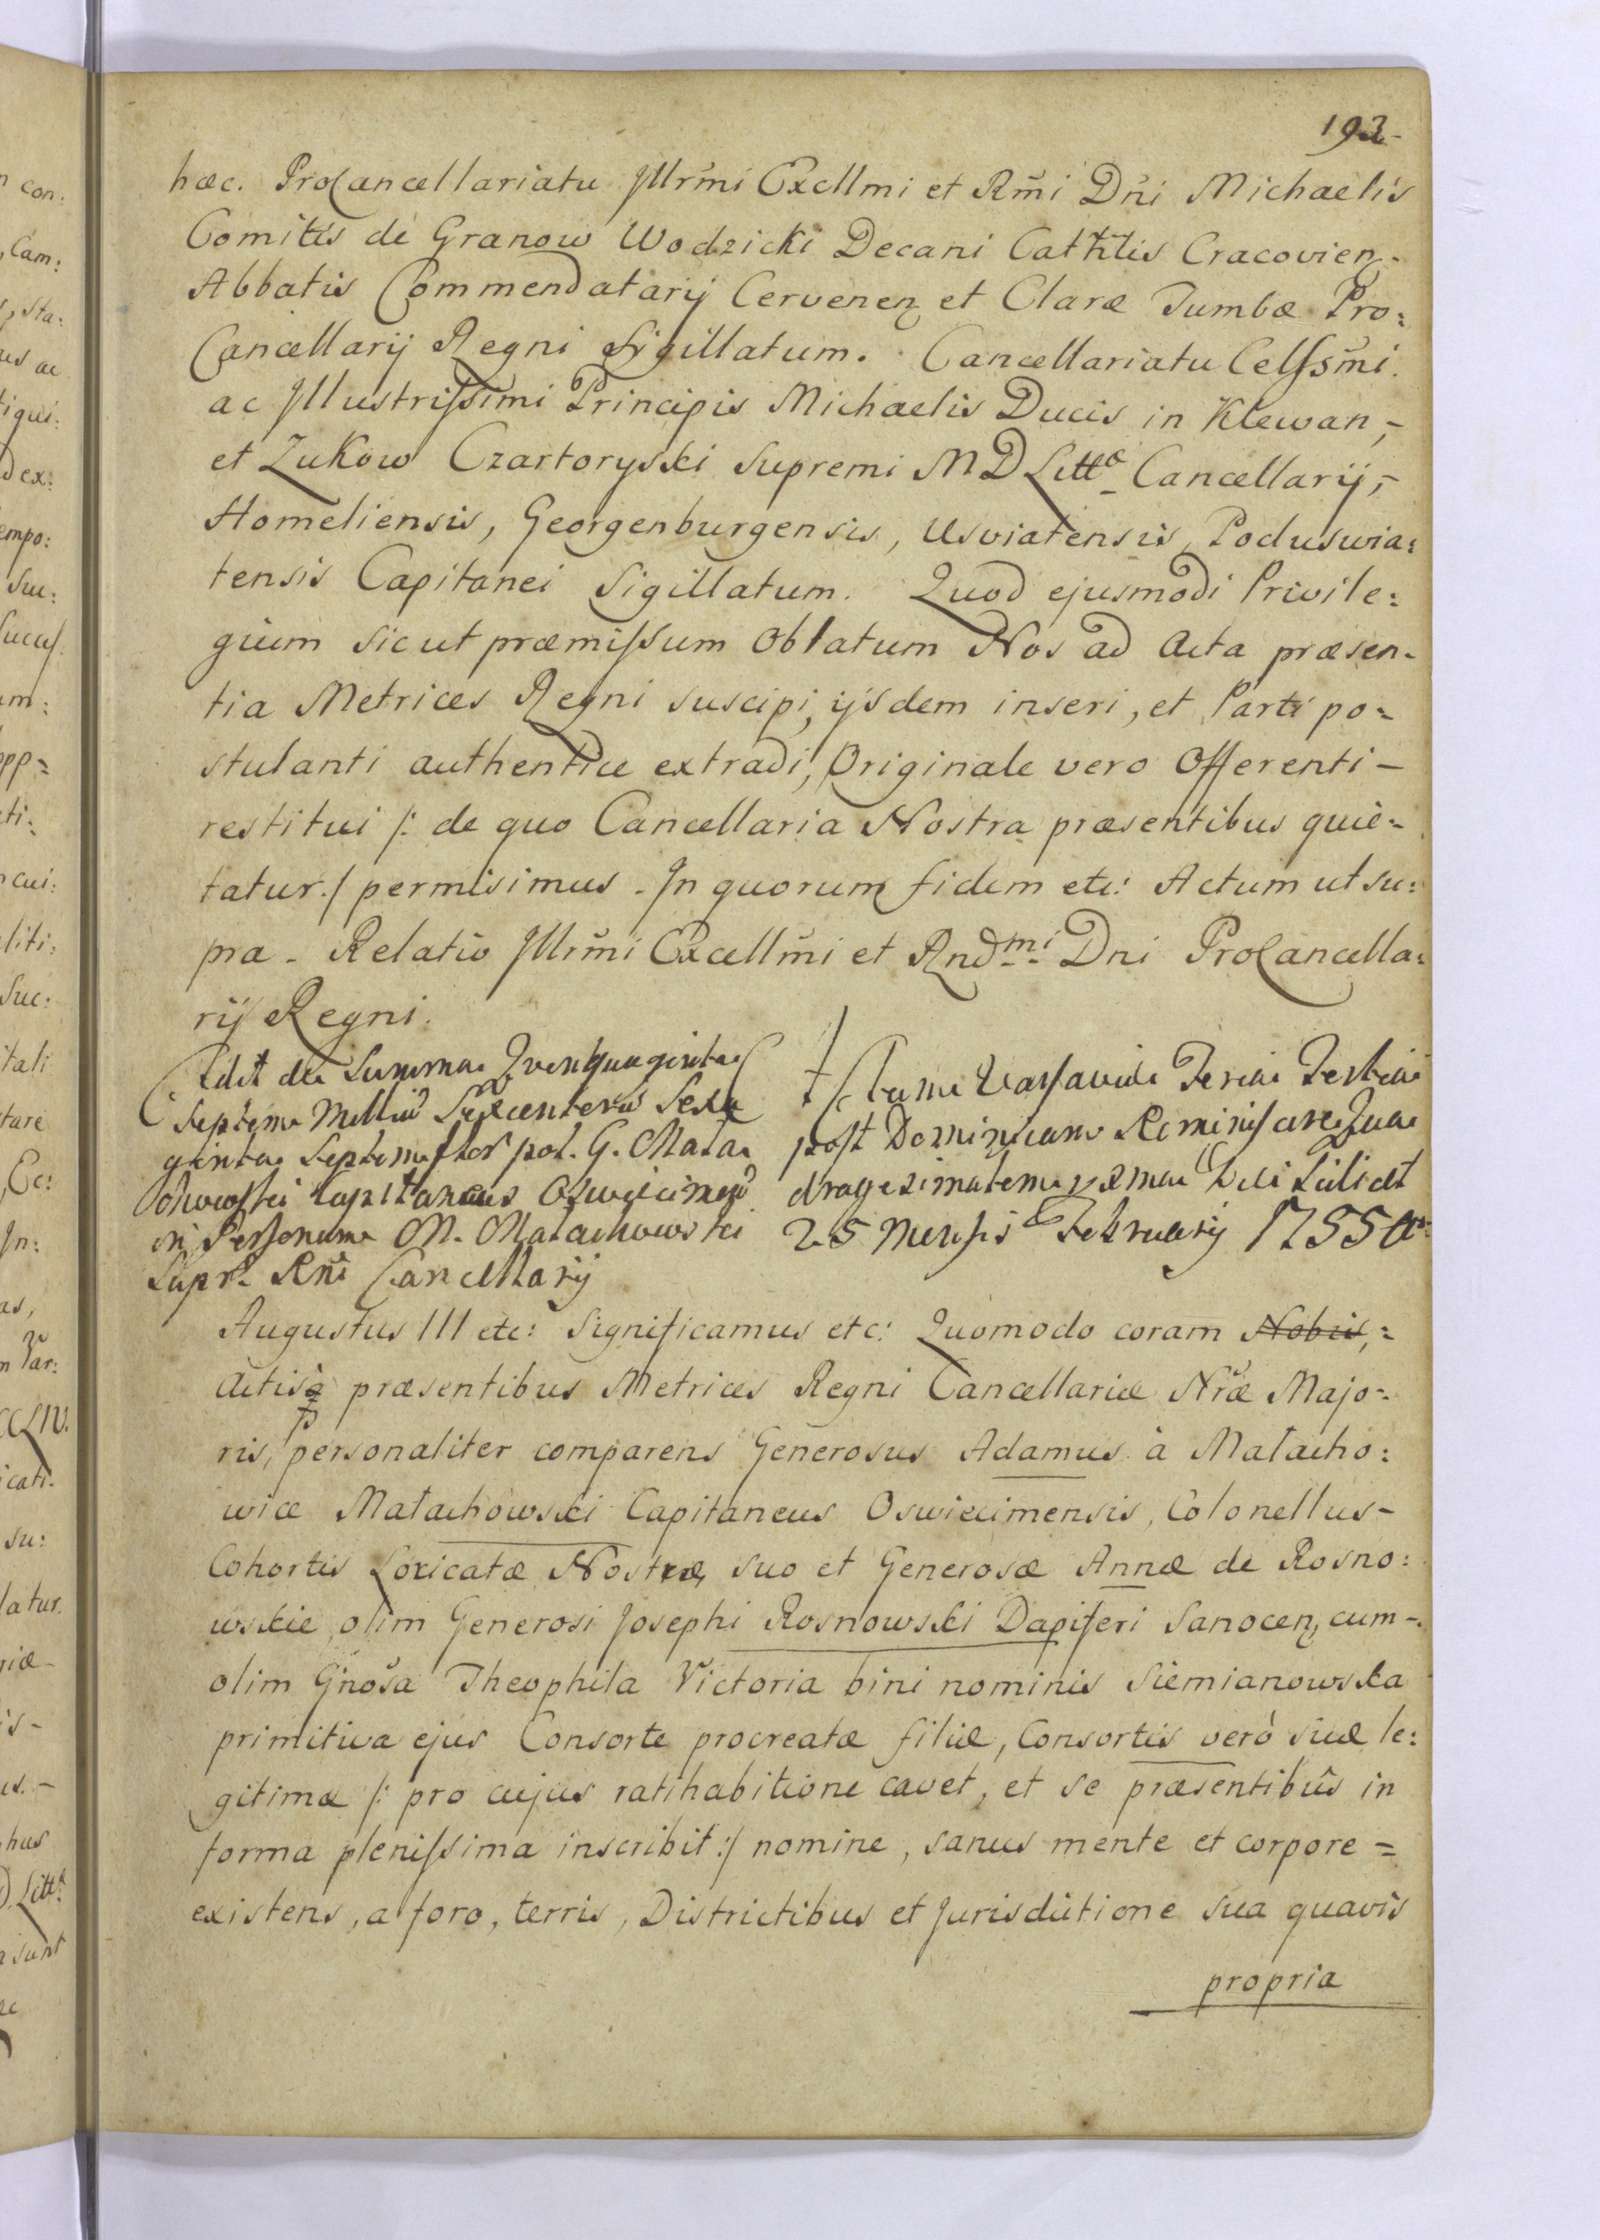 192
hæc. ProCancellariatu Jllrm̃i Excllmi et Rm̃i Dñi Michaelis
Comitis de Granow Wodzicki Decani Cathlis Cracovien.
Abbatis Commendatarij Cervenen et Claræ Tumbæ Pro:
Cancellarij Regni Sigillatum. Cancellariatu Celssm̃i
ac Jllustrissimi Principis Michaelis Ducis in Klewan,-
et Zukow Czartoryski Supremi M D Littæ Cancellarij,-
Homeliensis, Georgenburgensis, Usviatensis, Poduswia:
tensis Capitanei Sigillatum. Quod ejusmodi Privile:
gium sicut præmissum Oblatum Nos ad Acta præsen-
tia Metrices Regni suscipi, ijsdem inseri, et Parti po=
stulanti authentice extradi, Originale vero Offerenti-
restitui /: de quo Cancellaria Nostra præsentibus quie=
tatur :/ permisimus. Jn quorum fidem etc: Actum ut su:
pra. Relatio Jllrm̃i Excellm̃i et Rndmi Dni ProCancella:
rij Regni.
Cedit de Summa Quinquaginta
Septem Milliũ Sexcentorũ Sexa
ginta Septem flor pol. G. Mała
chowski Capitaneus Oswiecimen̄
in Personam M. Małachowski
Supr. Rñi Cancellarij
Actum Varsaviæ Feria Tertia
post Dominicam Reminiscere Qua
dragesimalem proxima Die scilicet
25 Mensis February 1755 Aō
Augustus III etc: Significamus etc: Quomodo coram Nobis,=
Actisq præsentibus Metrices Regni Cancellariæ Nr̃æ Majo=
ris, personaliter comparens Generosus Adamus à Małacho:
wice Małachowski Capitaneus Oswiecimensis, Colonellus-
Cohortis Loricatæ Nostræ, suo et Generosæ Annæ de Rosno:
wskie olim Generosi Josephi Rosnowski Dapiferi Sanocen, cum-
olim Gñosa Theophila Victoria bini nominis Siemianowska
primitiva ejus Consorte procreatæ filiæ, Consortis verò suæ le:
gitimæ /: pro cujus ratihabitione cavet, et se præsentibus in
forma plenissima inscribit :/ nomine, sanus mente et corpore=
existens, a foro, terris, Districtibus et Jurisdictione sua quavis
propria